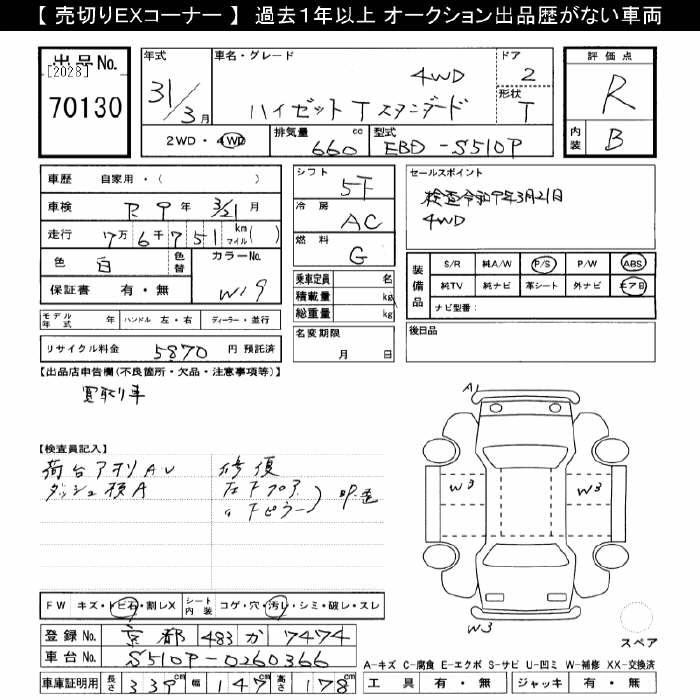 【 売切りEXコーナー 】 過去1年以上 オークション出品歴がない車両
出品No.
[2028]
70130
年式
31/3月
車名・グレード
4WD
ハイゼット T スタンダード
ドア
2
形状
T
評価点
R
内装
B
2WD・4WD
排気量
660 cc
型式
EBD-S510P
車歴 自家用・( )
車検 R 9 年 3/21 月
走行 7万6千751 km マイル( )
色 白 色替 カラーNo.
W19
保証書 有・無
モデル年式 年 ハンドル 左・右 ディーラー・並行
リサイクル料金 5870 円 預託済
シフト
5F
冷房
AC
燃料
G
乗車定員 名
積載量 kg
総重量 kg
名変期限
月 日
セールスポイント
検査令和9年3月21日
4WD
装備品
S/R 純A/W P/S P/W ABS
純TV 純ナビ 革シート 外ナビ エアB
ナビ型番:
後日品
【出品店申告欄(不良箇所・欠品・注意事項等)】
買取り車
【検査員記入】
荷台アオリAU
修復
A1
W3
W3
W3
FW キズ・トビ石・割レX シート内装 コゲ・穴・汚レ・シミ・破レ・スレ
登録No. 京都 483 か 7474
車台No. S510P-0260366
車庫証明用 長さ 339cm 幅 147cm 高さ 178cm
スペア
A-キズ C-腐食 E-エクボ S-サビ U-凹ミ W-補修 XX-交換済
工具 有・無 ジャッキ 有・無